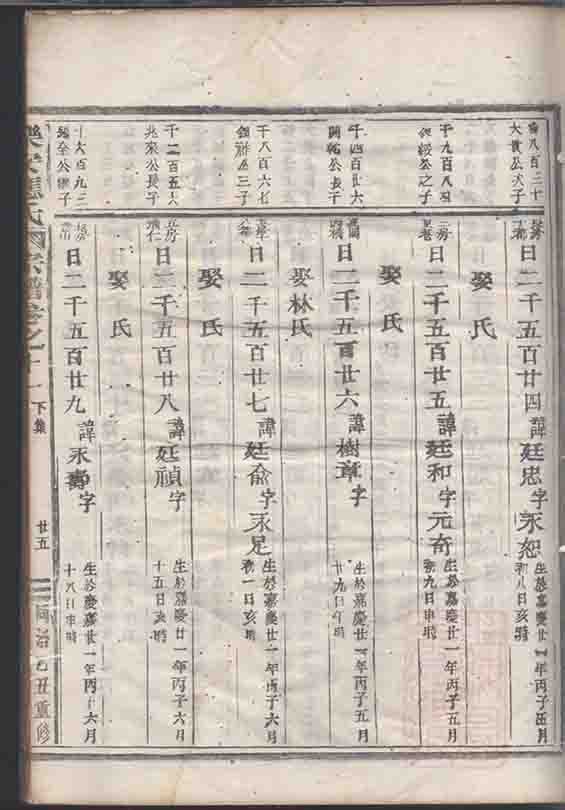 八百三十
大 公 子
日二千五百廿四諱廷忠字永恕
生於嘉慶廿一年丙子五月
初八日亥時
娶氏
千九百八
公之子
日二千五百廿五諱廷和字元奇
生於嘉慶廿一年丙子五月
初九日申時
娶氏
千四百廿六
公長子
日二千五百廿六諱樹章字
生於嘉慶廿一年丙子五月
廿九日午時
娶林氏
千八百六七
公三子
日二千五百廿七諱廷俞字永足
生於嘉慶廿一年丙子六月
初一日亥時
娶氏
千二百五
兆來公長子
日二千五百廿八諱廷禎字
生於嘉慶廿一年丙子六月
十五日亥時
娶氏
千六百九三
全公 子
日二千五百廿九諱永壽字
生於慶嘉廿一年丙子六月
十八日申時
氏 宗譜卷之十一
下集
廿五
同治乙丑重修